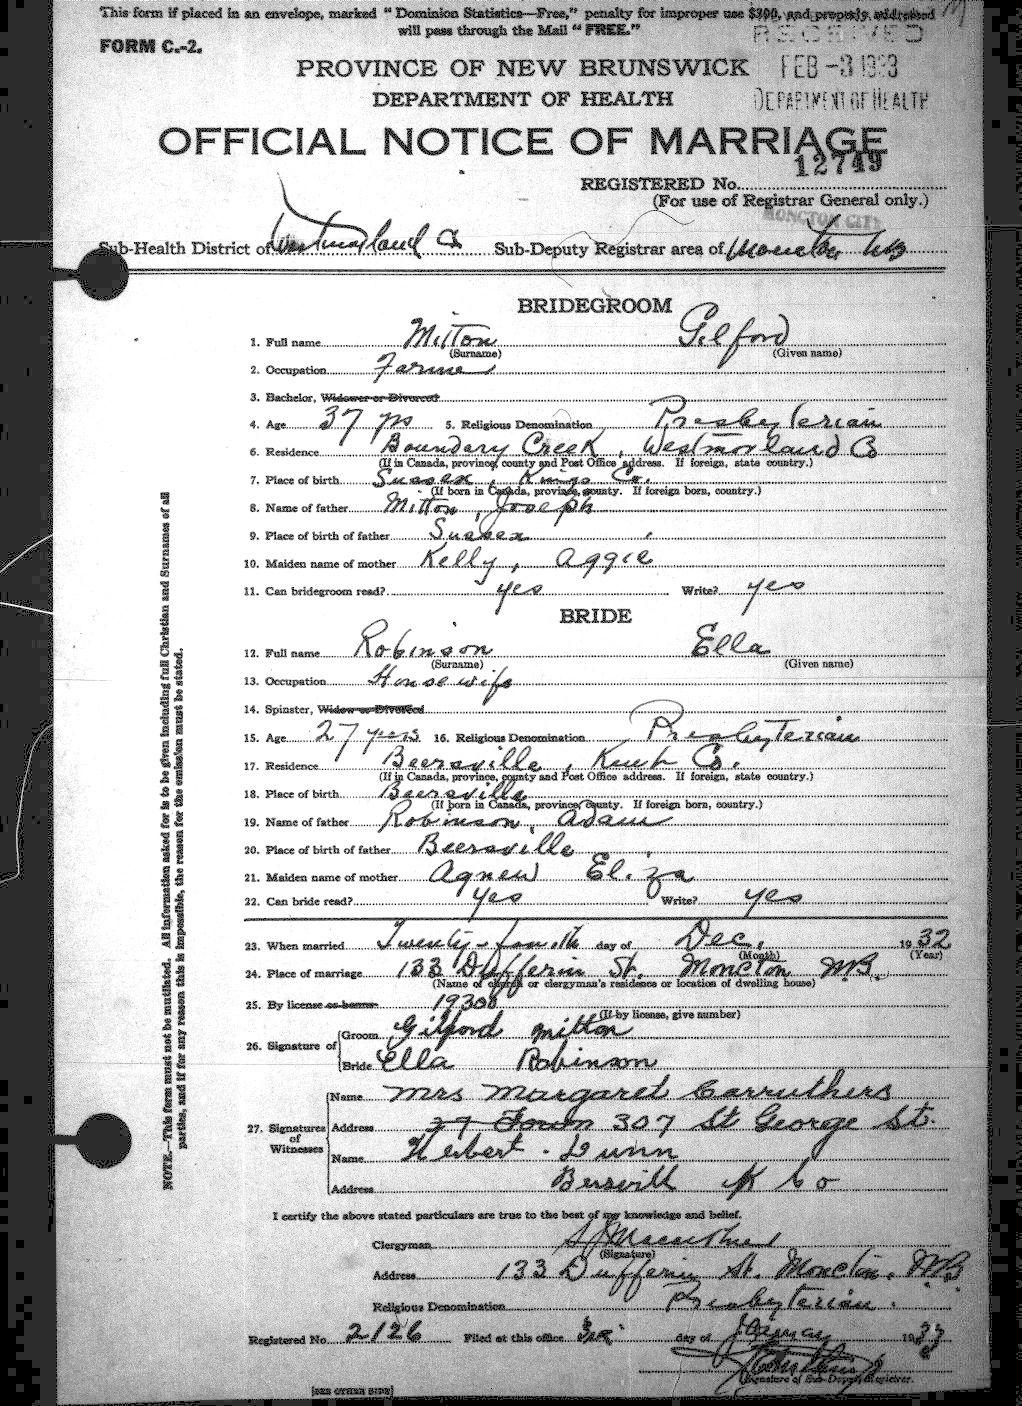 This form if placed in an envelope, marked "Dominion Statistics—Free," penalty for improper use $300, and properly addressed
will pass through the Mail "FREE."
FORM C.-2.
RECEIVED
FEB -3 1933
DEPARTMENT OF HEALTH
PROVINCE OF NEW BRUNSWICK
DEPARTMENT OF HEALTH
OFFICIAL NOTICE OF MARRIAGE
12749
REGISTERED No.
(For use of Registrar General only.)
MONCTON CITY
Sub-Health District of Westmorland Co Sub-Deputy Registrar area of Moncton NB
BRIDEGROOM
1. Full name Mitton Gilford
(Surname) (Given name)
2. Occupation Farmer
3. Bachelor, Widower or Divorced
4. Age 37 yrs 5. Religious Denomination Presbyterian
6. Residence Boundary Creek, Westmorland Co
(If in Canada, province, county and Post Office address. If foreign, state country.)
7. Place of birth Sussex, Kings Co.
(If born in Canada, province, county. If foreign born, country.)
8. Name of father Mitton, Joseph
9. Place of birth of father Sussex
10. Maiden name of mother Kelly, Aggie
11. Can bridegroom read? yes Write? yes
BRIDE
12. Full name Robinson Ella
(Surname) (Given name)
13. Occupation Housewife
14. Spinster, Widow or Divorced
15. Age 27 years 16. Religious Denomination Presbyterian
17. Residence Beersville, Kent Co.
(If in Canada, province, county and Post Office address. If foreign, state country.)
18. Place of birth Beersville
(If born in Canada, province, county. If foreign born, country.)
19. Name of father Robinson, Adam
20. Place of birth of father Beersville
21. Maiden name of mother Agnew Eliza
22. Can bride read? yes Write? yes
23. When married Twenty-fourth day of Dec. 1932
(Month) (Year)
24. Place of marriage 133 Dufferin St. Moncton NB.
(Name of church or clergyman's residence or location of dwelling house)
25. By license or banns 19300
(If by license, give number)
26. Signature of Groom Gilford Mitton
Bride Ella Robinson
27. Signatures of Witnesses
Name Mrs Margaret Carruthers
Address 307 St George St.
Name Herbert Dunn
Address Bersvill K Co
I certify the above stated particulars are true to the best of my knowledge and belief.
Clergyman
(Signature)
Address 133 Dufferin St. Moncton, NB
Religious Denomination Presbyterian.
Registered No. 2126 Filed at this office day of January 1933
Signature of Sub-Deputy Registrar.
[SEE OTHER SIDE]
NOTE.—This form must not be mutilated. All information asked for is to be given including full Christian and Surnames of all
parties, and if for any reason this is impossible, the reason for the omission must be stated.